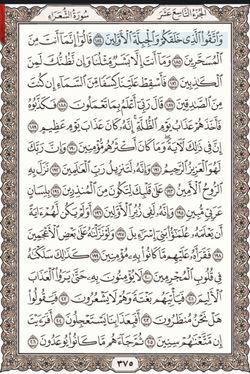 سُورَةُ الشُّعَرَاءِ الجُزْءُ التَّاسِعَ عَشَرَ
وَاتَّقُوا الَّذِي خَلَقَكُمْ وَالْجِبِلَّةَ الْأَوَّلِينَ ١٨٤ قَالُوا إِنَّمَا أَنتَ مِنَ
الْمُسَحَّرِينَ ١٨٥ وَمَا أَنتَ إِلَّا بَشَرٌ مِّثْلُنَا وَإِن نَّظُنُّكَ لَمِنَ
الْكَاذِبِينَ ١٨٦ فَأَسْقِطْ عَلَيْنَا كِسَفًا مِّنَ السَّمَاءِ إِن كُنتَ
مِنَ الصَّادِقِينَ ١٨٧ قَالَ رَبِّي أَعْلَمُ بِمَا تَعْمَلُونَ ١٨٨ فَكَذَّبُوهُ
فَأَخَذَهُمْ عَذَابُ يَوْمِ الظُّلَّةِ إِنَّهُ كَانَ عَذَابَ يَوْمٍ عَظِيمٍ ١٨٩
إِنَّ فِي ذَٰلِكَ لَآيَةً وَمَا كَانَ أَكْثَرُهُم مُّؤْمِنِينَ ١٩٠ وَإِنَّ رَبَّكَ
لَهُوَ الْعَزِيزُ الرَّحِيمُ ١٩١ وَإِنَّهُ لَتَنزِيلُ رَبِّ الْعَالَمِينَ ١٩٢ نَزَلَ بِهِ
الرُّوحُ الْأَمِينُ ١٩٣ عَلَىٰ قَلْبِكَ لِتَكُونَ مِنَ الْمُنذِرِينَ ١٩٤ بِلِسَانٍ
عَرَبِيٍّ مُّبِينٍ ١٩٥ وَإِنَّهُ لَفِي زُبُرِ الْأَوَّلِينَ ١٩٦ أَوَلَمْ يَكُن لَّهُمْ آيَةً
أَن يَعْلَمَهُ عُلَمَاءُ بَنِي إِسْرَائِيلَ ١٩٧ وَلَوْ نَزَّلْنَاهُ عَلَىٰ بَعْضِ الْأَعْجَمِينَ
١٩٨ فَقَرَأَهُ عَلَيْهِم مَّا كَانُوا بِهِ مُؤْمِنِينَ ١٩٩ كَذَٰلِكَ سَلَكْنَاهُ
فِي قُلُوبِ الْمُجْرِمِينَ ٢٠٠ لَا يُؤْمِنُونَ بِهِ حَتَّىٰ يَرَوُا الْعَذَابَ
الْأَلِيمَ ٢٠١ فَيَأْتِيَهُم بَغْتَةً وَهُمْ لَا يَشْعُرُونَ ٢٠٢ فَيَقُولُوا
هَلْ نَحْنُ مُنظَرُونَ ٢٠٣ أَفَبِعَذَابِنَا يَسْتَعْجِلُونَ ٢٠٤ أَفَرَأَيْتَ
إِن مَّتَّعْنَاهُمْ سِنِينَ ٢٠٥ ثُمَّ جَاءَهُم مَّا كَانُوا يُوعَدُونَ ٢٠٦
٣٧٥